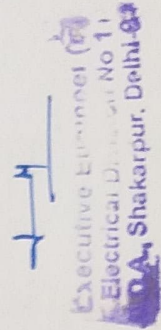 Executive Engineer (
Electrical Division No 1
DDA, Shakarpur, Delhi-92